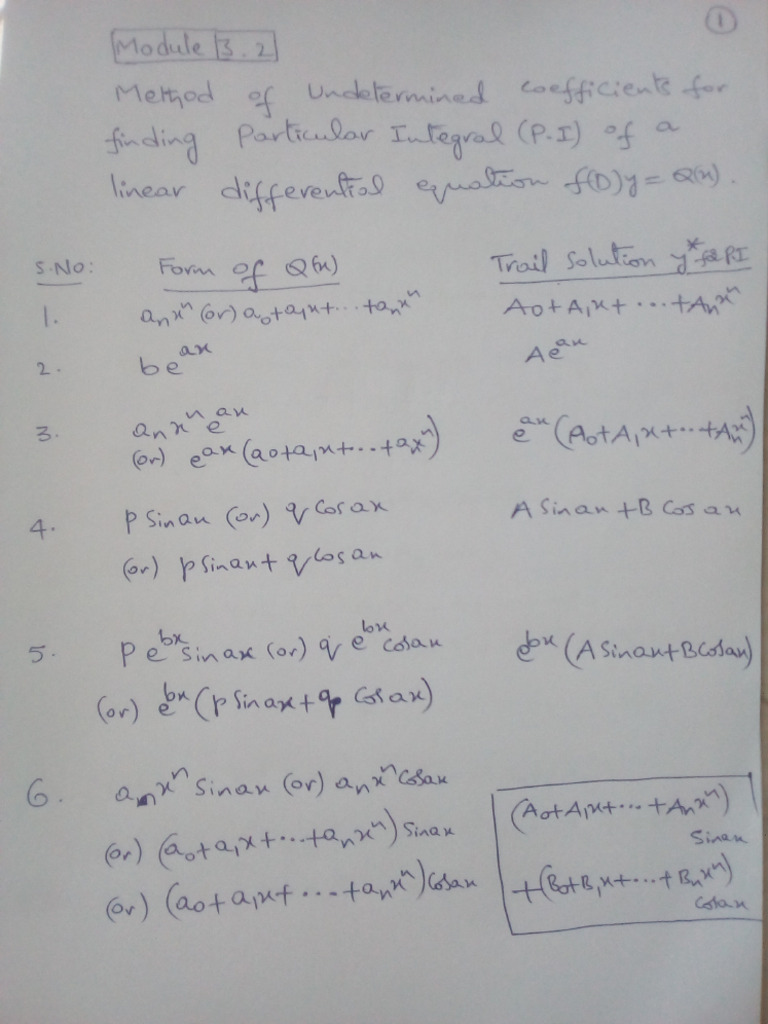 1
Module 3.2
Method of Undetermined coefficients for
finding Particular Integral (P.I) of a
linear differential equation f(D)y = Q(x).
S.NO: Form of Q(x) Trail Solution y* for PI
1. aₙxⁿ (or) a₀+a₁x+...+aₙxⁿ A₀+A₁x+...+Aₙxⁿ
2. be^ax Ae^ax
3. aₙxⁿe^ax
(or) e^ax(a₀+a₁x+...+aₙxⁿ) e^ax(A₀+A₁x+...+Aₙxⁿ)
4. p Sinax (or) q Cosax A Sinax + B Cosax
(or) p Sinax + q Cosax
5. p e^bx sinax (or) q e^bx cosax e^bx (A Sinax + B Cosax)
(or) e^bx (p Sinax + q Cosax)
6. aₙxⁿ Sinax (or) aₙxⁿ Cosax
(or) (a₀+a₁x+...+aₙxⁿ) Sinax
(or) (a₀+a₁x+...+aₙxⁿ) Cosax
(A₀+A₁x+...+Aₙxⁿ)
Sinax
+(B₀+B₁x+...+Bₙxⁿ)
Cosax